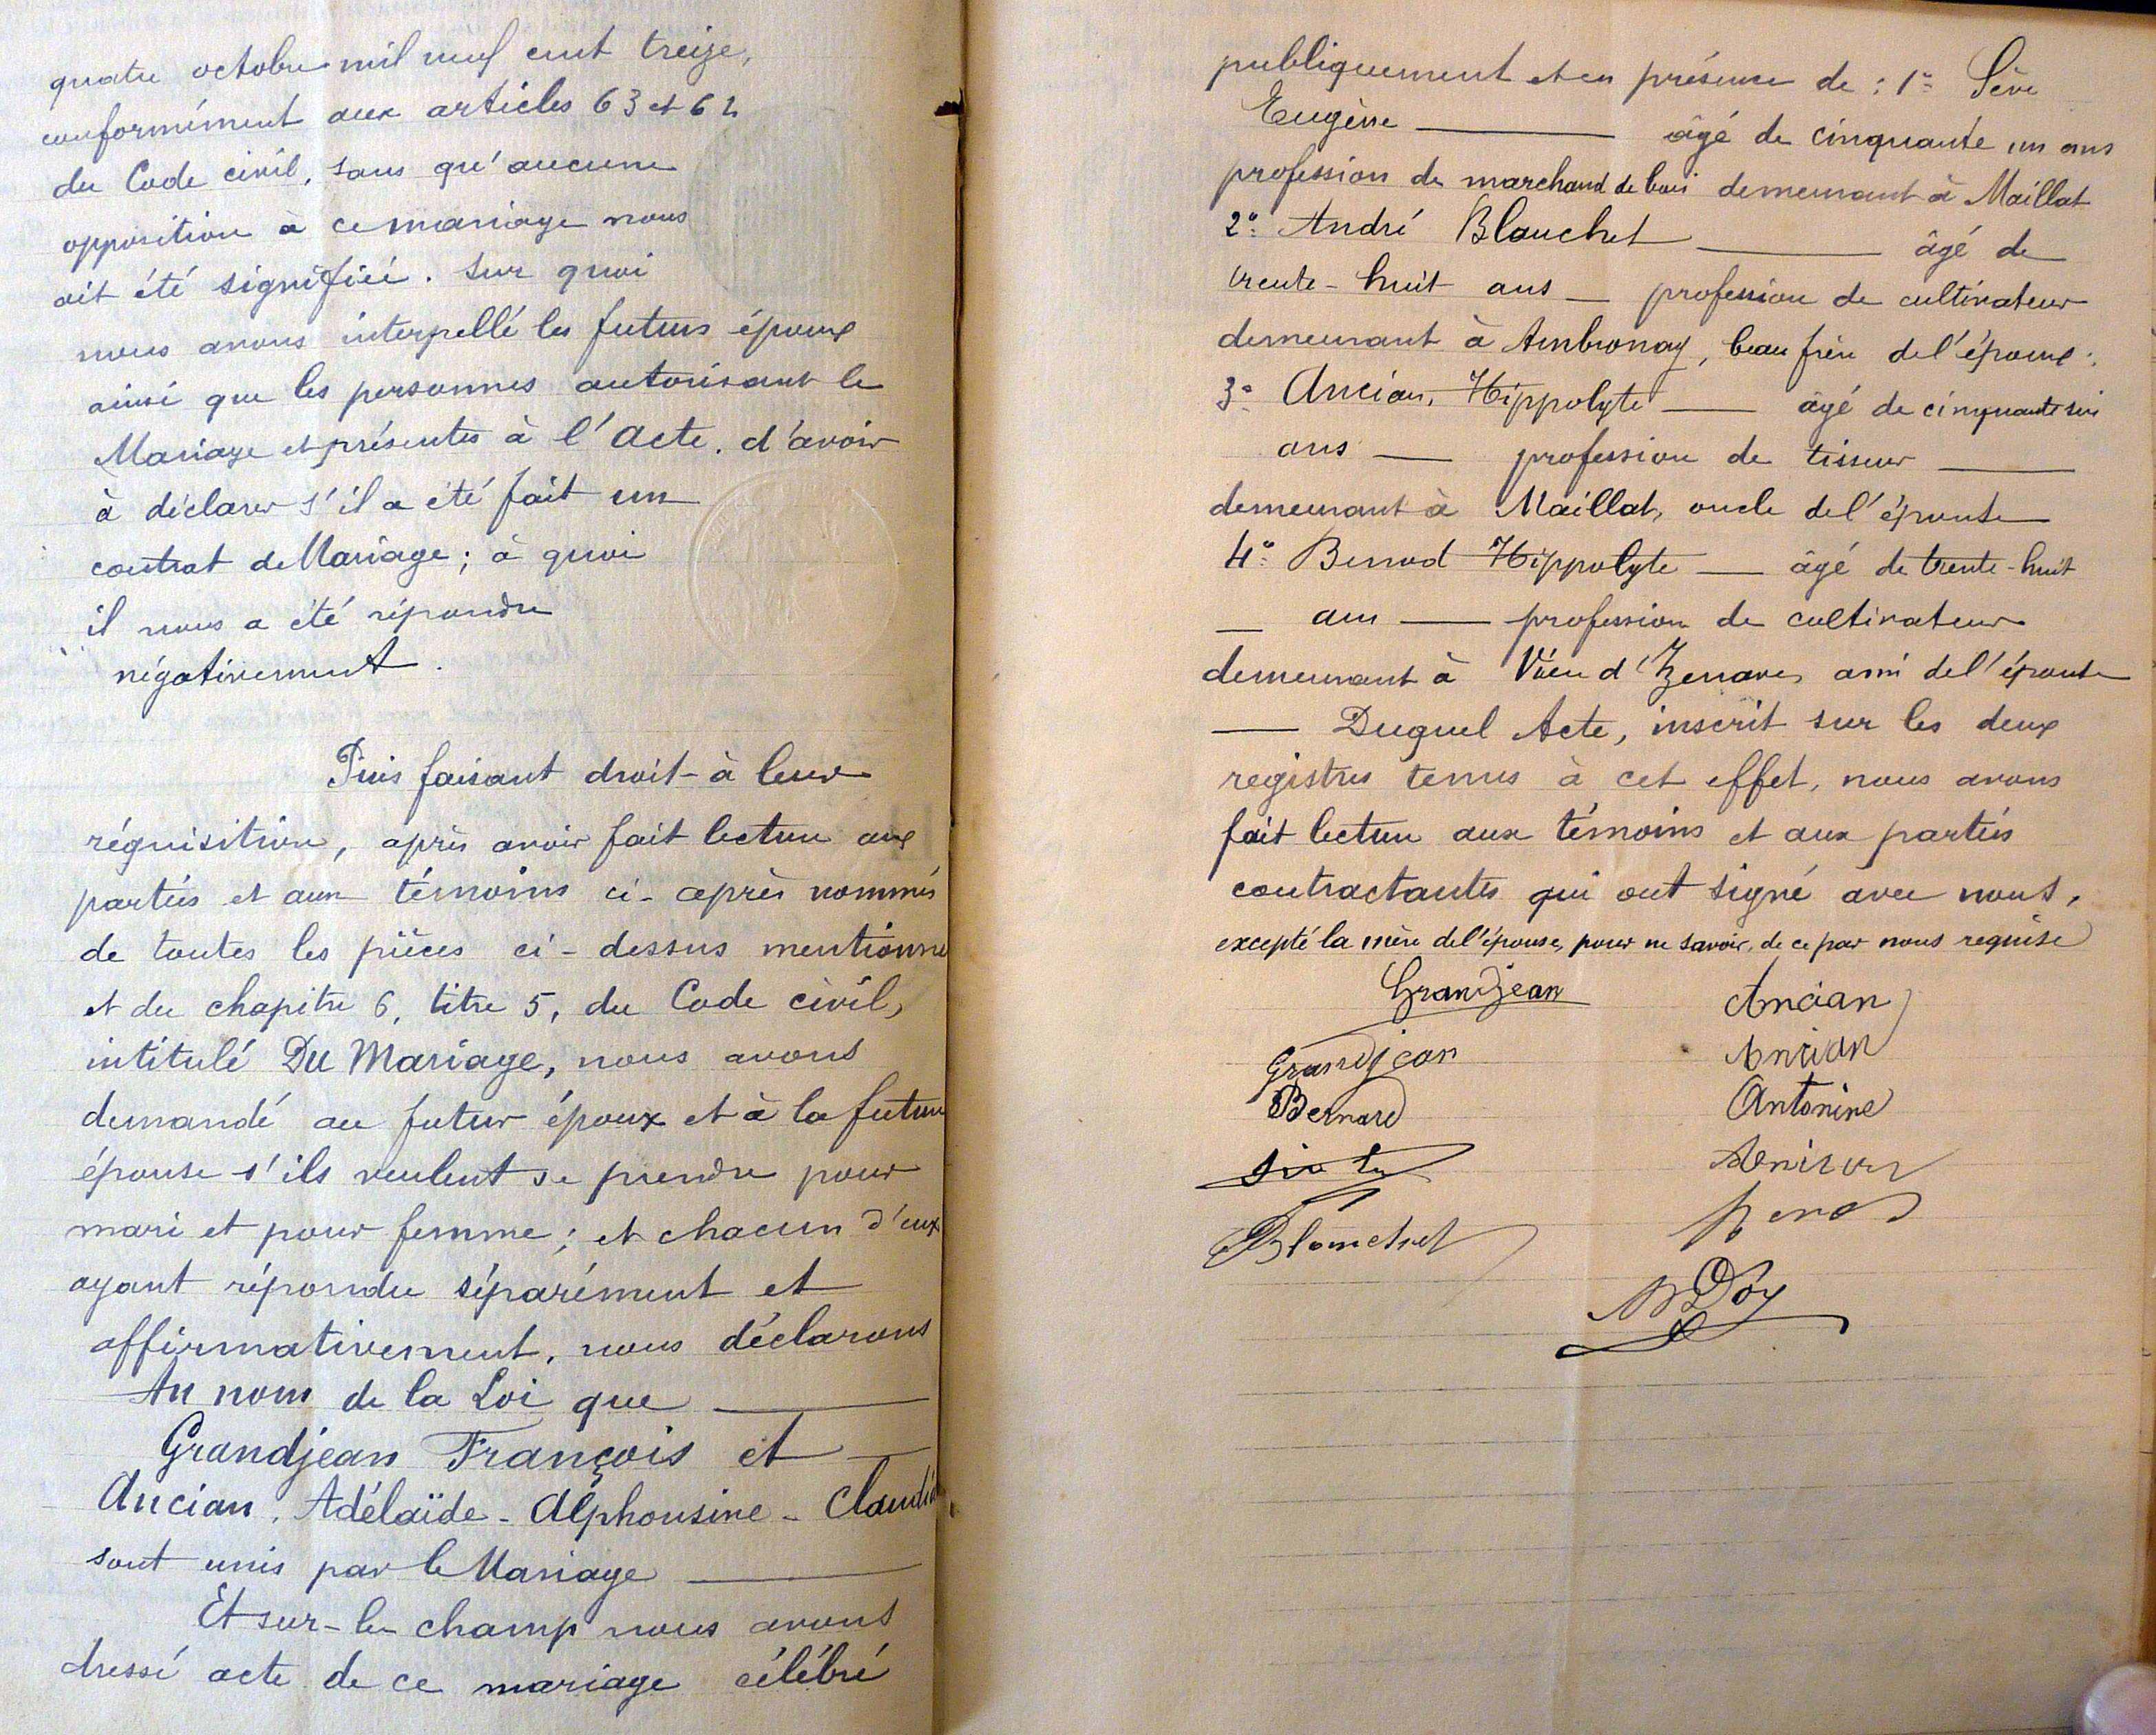 quatre octobre mil neuf cent treize,
conformément aux articles 63 et 64
du Code civil, sans qu'aucune
opposition à ce mariage nous
ait été signifiée. Sur quoi
nous avons interpellé les futurs époux
ainsi que les personnes autorisant le
Mariage et présentes à l'Acte, d'avoir
à déclarer s'il a été fait un
contrat de Mariage; à quoi
il nous a été répondu
négativement.
Puis faisant droit à leur
réquisition, après avoir fait lecture aux
parties et aux témoins ci-après nommés
de toutes les pièces ci-dessus mentionné
et du chapitre 6, titre 5, du Code civil,
intitulé Du Mariage, nous avons
demandé au futur époux et à la future
épouse s'ils veulent se prendre pour
mari et pour femme; et chacun d'eux
ayant répondu séparément et
affirmativement, nous déclarons
Au nom de la Loi que
Grandjean François et
Ancian, Adélaïde-Alphonsine-Claudia
sont unis par le Mariage
Et sur-le champ nous avons
dressé acte de ce mariage célébré
publiquement et en présence de : 1° Sève
Eugène âgé de cinquante un ans
profession de marchand de bois demeurant à Maillat
2° André Blanchet âgé de
trente-huit ans profession de cultivateur
demeurant à Ambronay, beau frère de l'époux.
3° Ancian, Hippolyte âgé de cinquante six
ans profession de tisseur
demeurant à Maillat, oncle de l'épouse
4° Benod Hippolyte âgé de trente-huit
ans profession de cultivateur
demeurant à Vieu d'Izenave, ami de l'épouse
Duquel Acte, inscrit sur les deux
registres tenus à cet effet, nous avons
fait lecture aux témoins et aux parties
contractantes qui ont signé avec nous,
excepté la mère de l'épouse, pour ne savoir, de ce par nous requise
Grandjean Ancian
Grandjean Ancian
Bernard Antonine
Blanchet